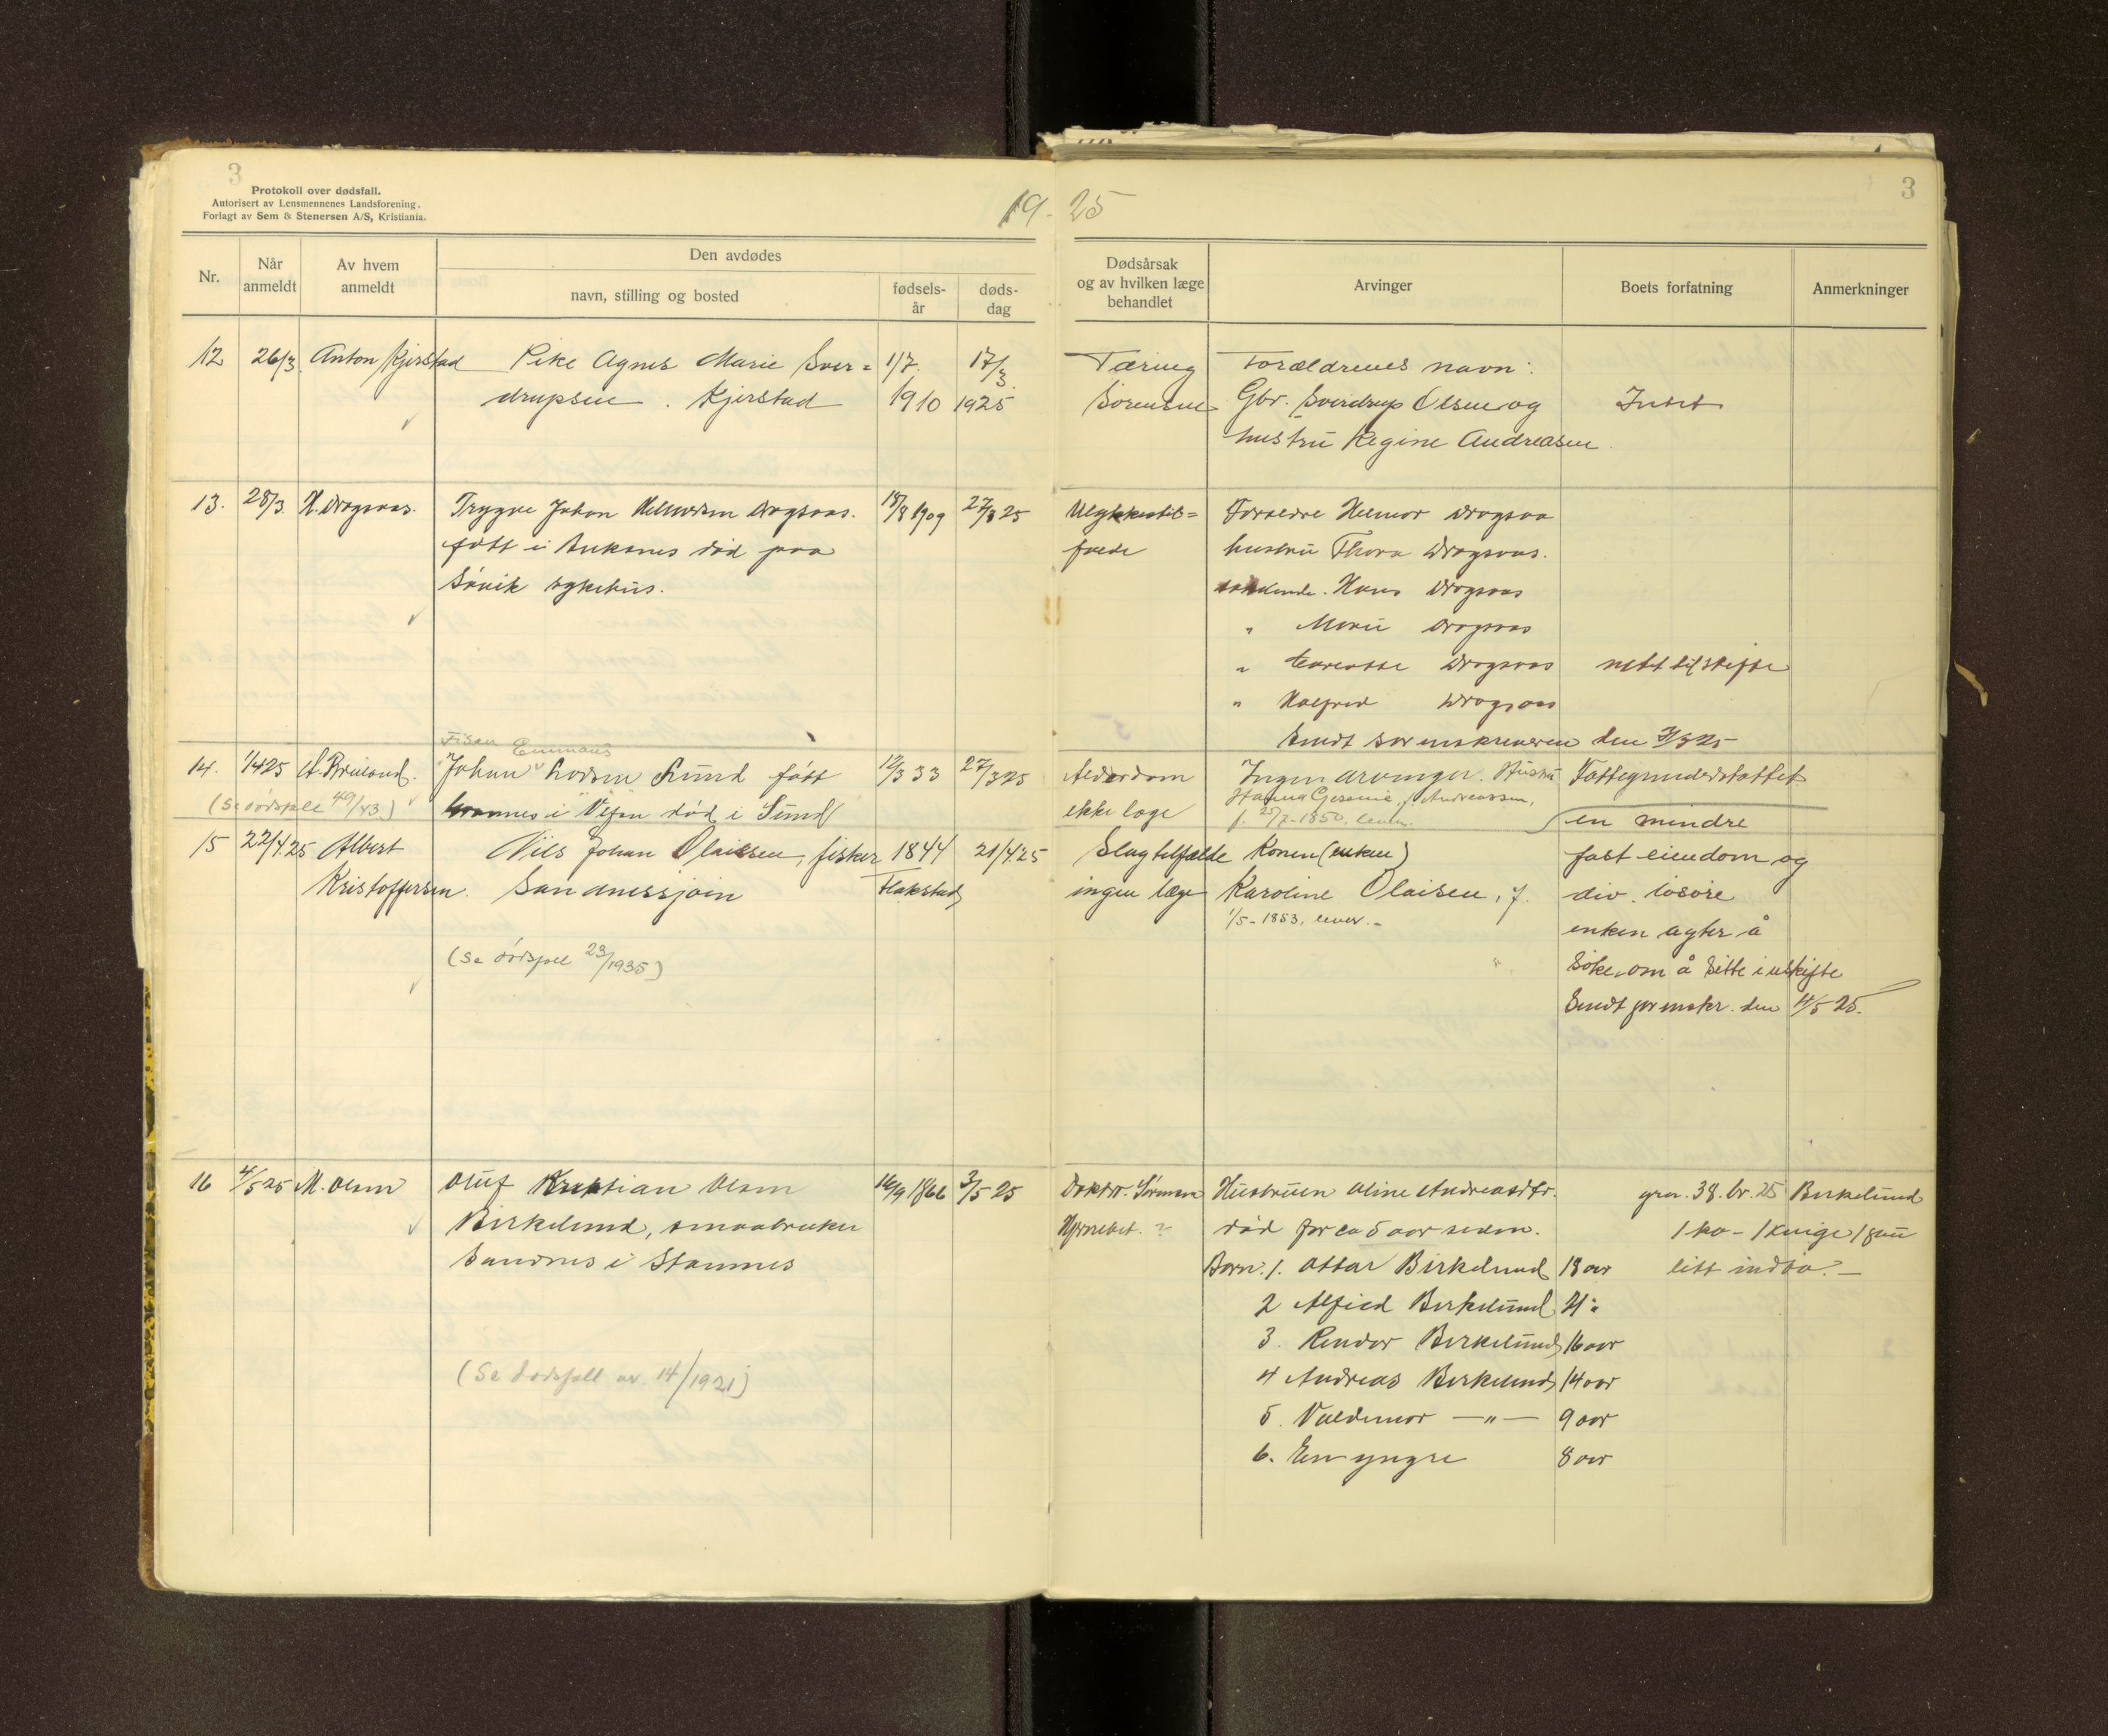 3
Protokoll over dødsfall.
Autorisert av Lensmennenes Landsforening.
Forlagt av Sem & Stenersen A/S, Kristiania.
19-25
3
Nr.
Når anmeldt
Av hvem anmeldt
Den avdødes
navn, stilling og bosted
fødsels-år
døds-dag
Dødsårsak og av hvilken læge behandlet
Arvinger
Boets forfatning
Anmerkninger
12 26/3 Anton Kjerstad Pike Agnes Marie Sver= 1/7 17/3 Tæring Forældrenes navn:
drupsen. Kjerstad 1910 1925 Sørensen Gbr. Sverdrup Olsen og Intet
hustru Regine Andreasen
13. 28/3 H. Dragsaas. Trygve Johan Helmersen Dragsaas. 18/8 1909 27/3 25 Ulykkestil= Foreldre Helmer Dragsaa
født i død paa falde hustru Thora Dragsaas.
Søvik sykehus. Søskende. Hans Dragsaas
" Marie Dragsaas
" Dragsaas nett til skifte
" Halfred Dragsaas
Sendt sorenskriveren den 3/3 25
Emmaus
14. 1/4 25 A. Breiland. Johan Larsen Lund født 12/3 33 27/3 25 Alderdom Ingen arvinger. Hustru Fattigunderstøttet
(Se dødsfall 40/43) i Vefsn død i Sund ikke læge Hanna Gesenie, f. Andreassen,
f. 25/7-1850, lever.
en mindre
15 22/4 25 Albert Nils Johan Olaissen, fisker 1844 21/4 25 Slagtilfælde Konen (enken) fast eiendom og
Kristoffersen. Sandnessjøin Flakstad ingen læge Karoline Olaisen, f. div. løsøre
1/5-1853, lever.- enken agter å
(Se dødsfall 23/1935) søke om å sitte i uskifte
Sendt sorenskr. den 4/5 25.
16 4/5 25 M. Olsen Oluf Kristian Olsen 16/9 1866 3/5 25 Doktor. Sørensen Hustruen Oline Andreasdtr. grn. 38. br. 25 Birkelund
Birkelund, smaabruker Hjernebet. ? død for ca 5 aar siden. 1 ko - 1 kvige 1 sau
Sandnes i Stamnes Barn. 1. Ottar Birkelund 18 aar litt indbo. —
2 Alfred Birkelund 21 "
3. Reidar Birkelund 16 aar
(Se dødsfall nr. 14/1921) 4 Andreas Birkelund 14 aar
5. Valdemar —"— 9 aar
6. En yngre 8 aar